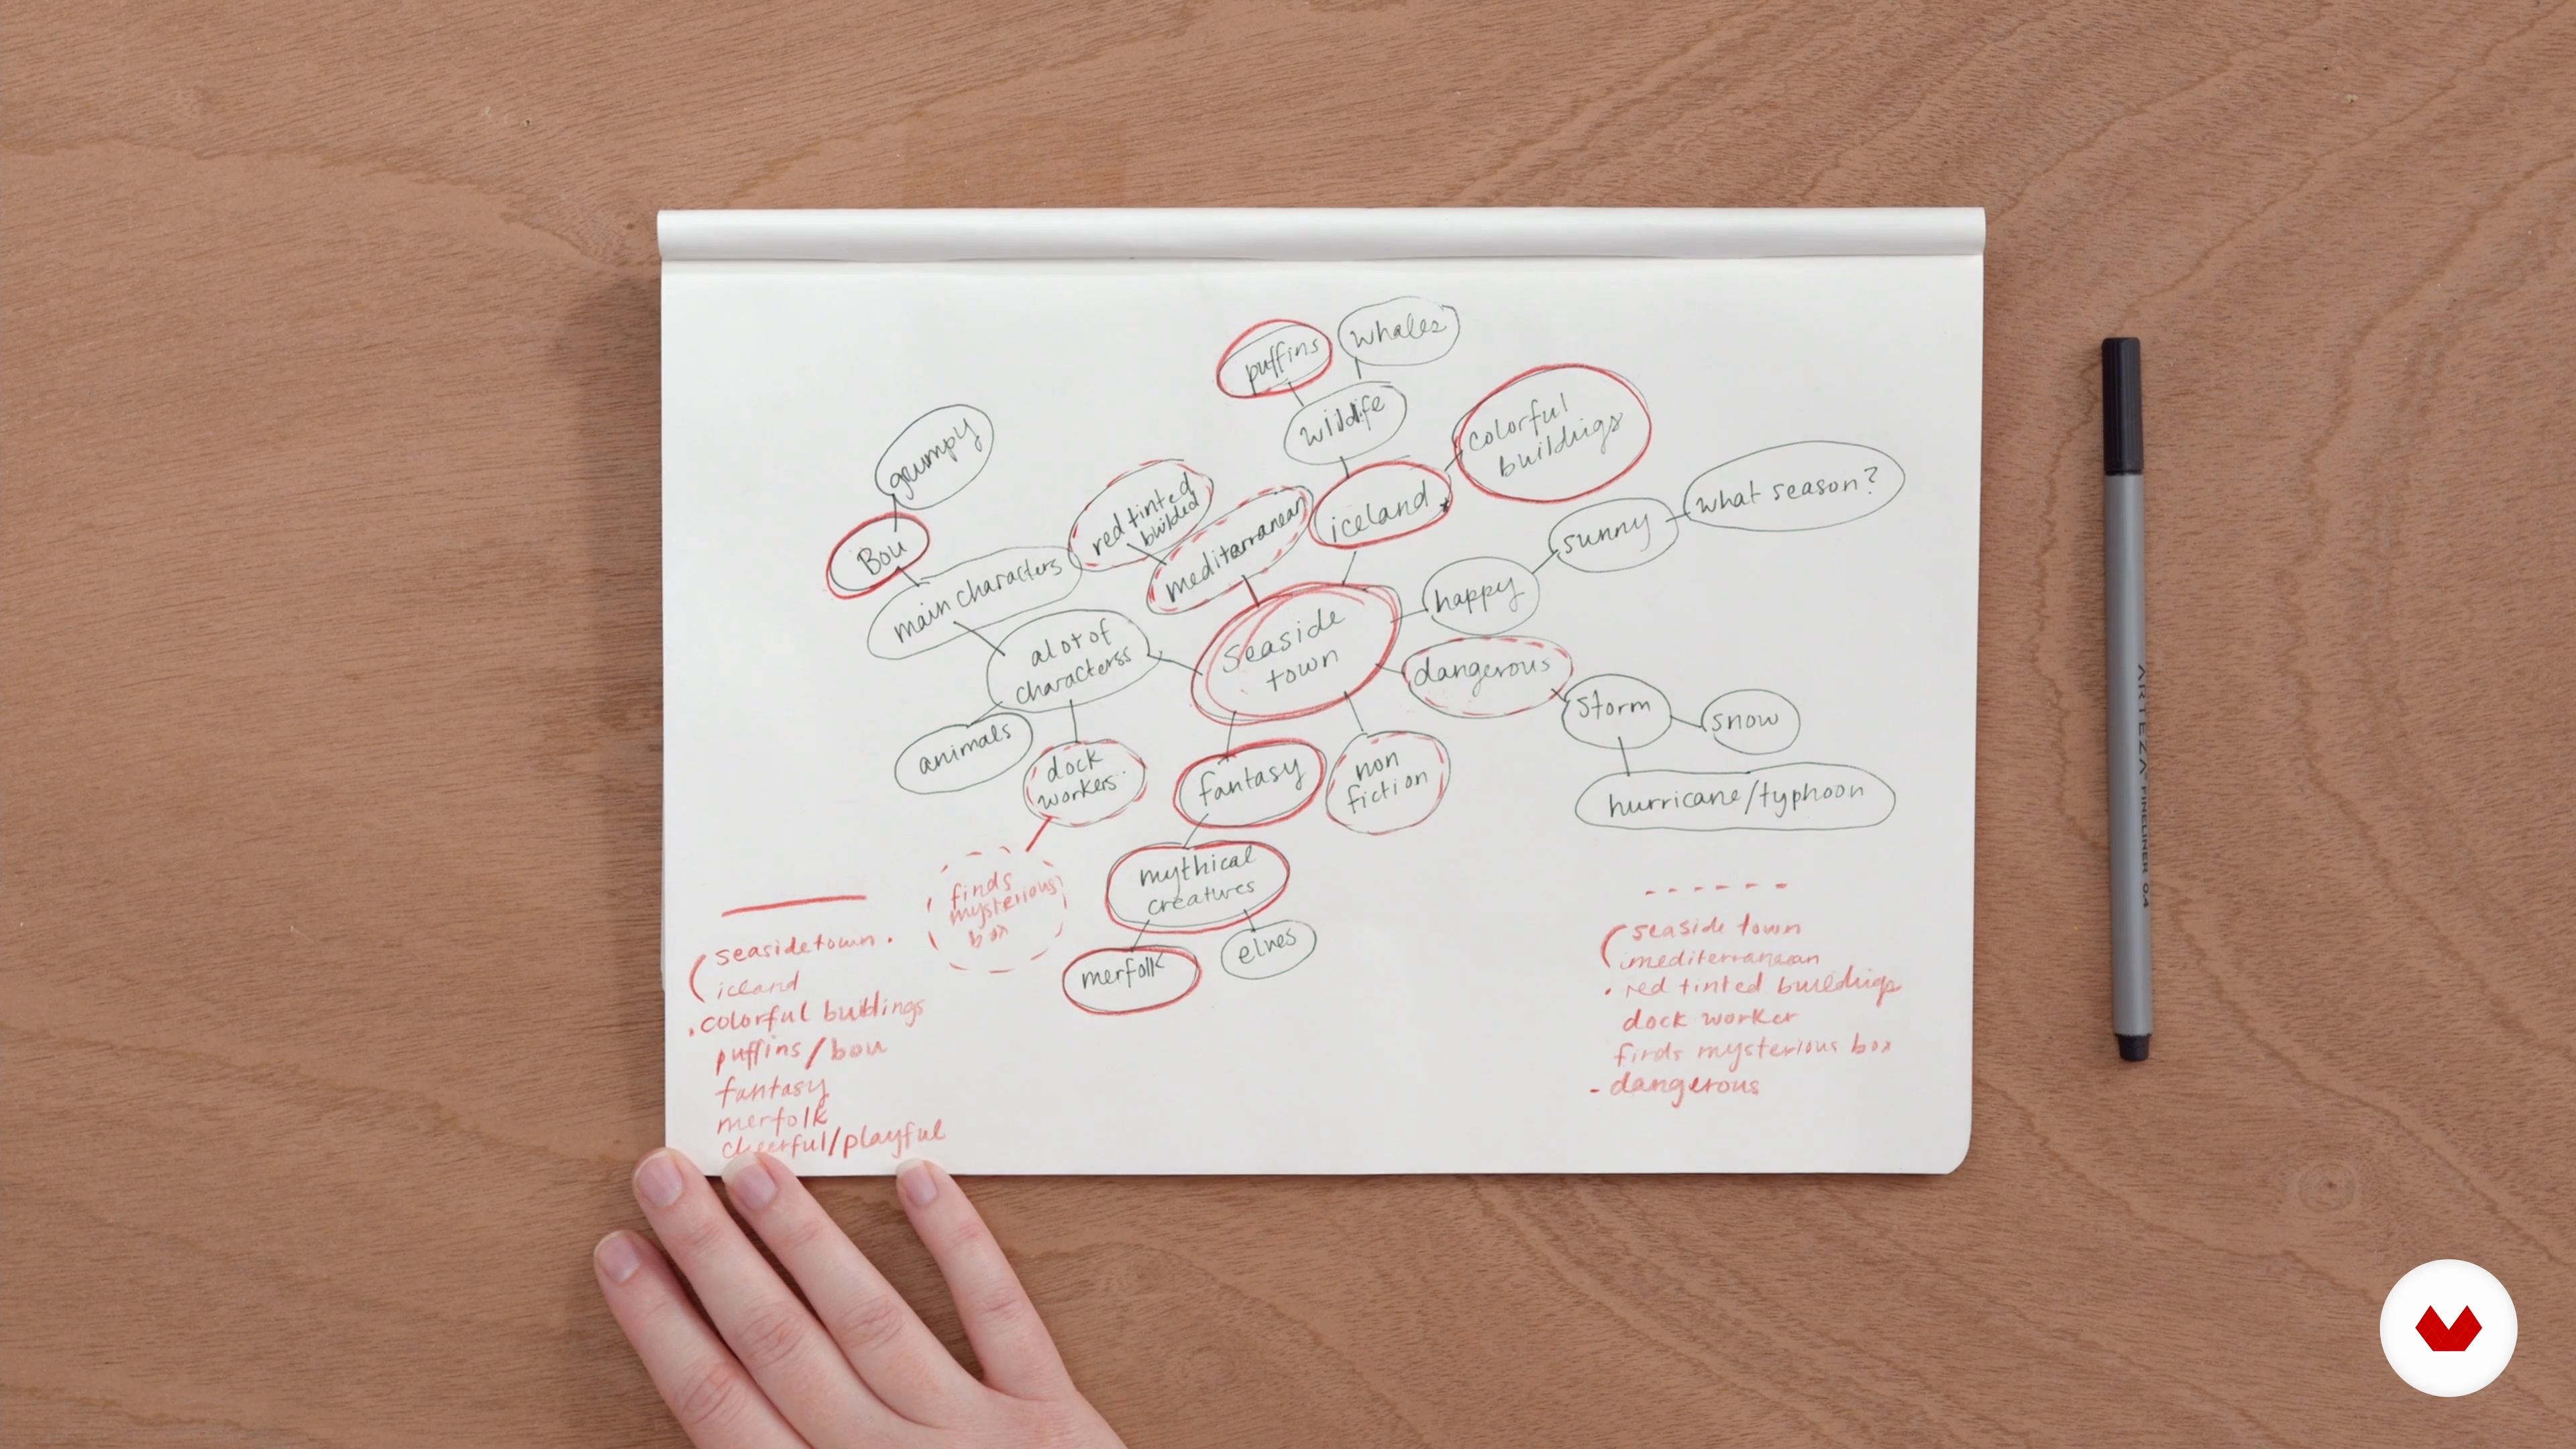 puffins
whales
wildlife
colorful
buildings
grumpy
iceland
what season?
sunny
red tinted
builded
mediterranean
Bou
main characters
happy
seaside
town
a lot of
characterss
dangerous
storm
snow
animals
dock
workers
fantasy
non
fiction
hurricane/typhoon
mythical
creatures
finds
mysterious
box
merfolk
elves
seaside town
iceland
colorful buildings
puffins/bou
fantasy
merfolk
cheerful/playful
seaside town
mediterranean
red tinted buildings
dock worker
finds mysterious box
- dangerous
ARTEZA FINELINER 04